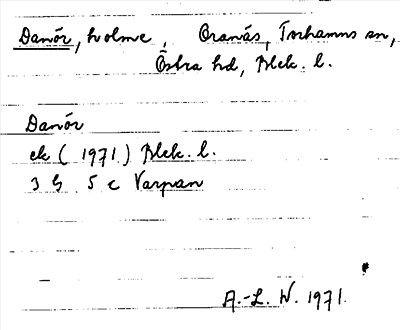 Danör, holme, Oranäs, Torhamns sn,
Östra hd, Blek. l.
Danör
ek (1971) Blek. l.
3 G 5 c Varpan
A.-L. W. 1971.